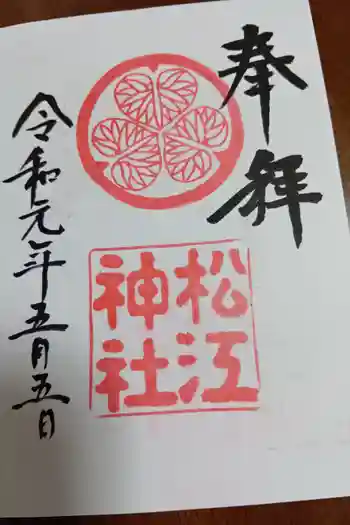 奉拝
松江
神社
令和元年五月五日